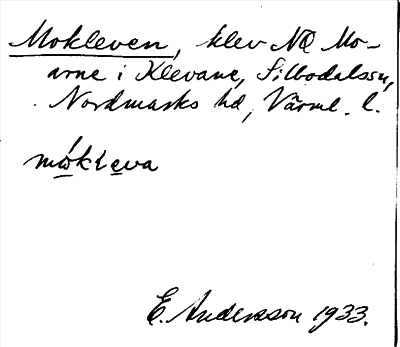 Mokleven, klev NO Mo-
arne i Klevane, Silbodalssn,
Nordmarks hd, Värml. l.
E. Andersson 1933.